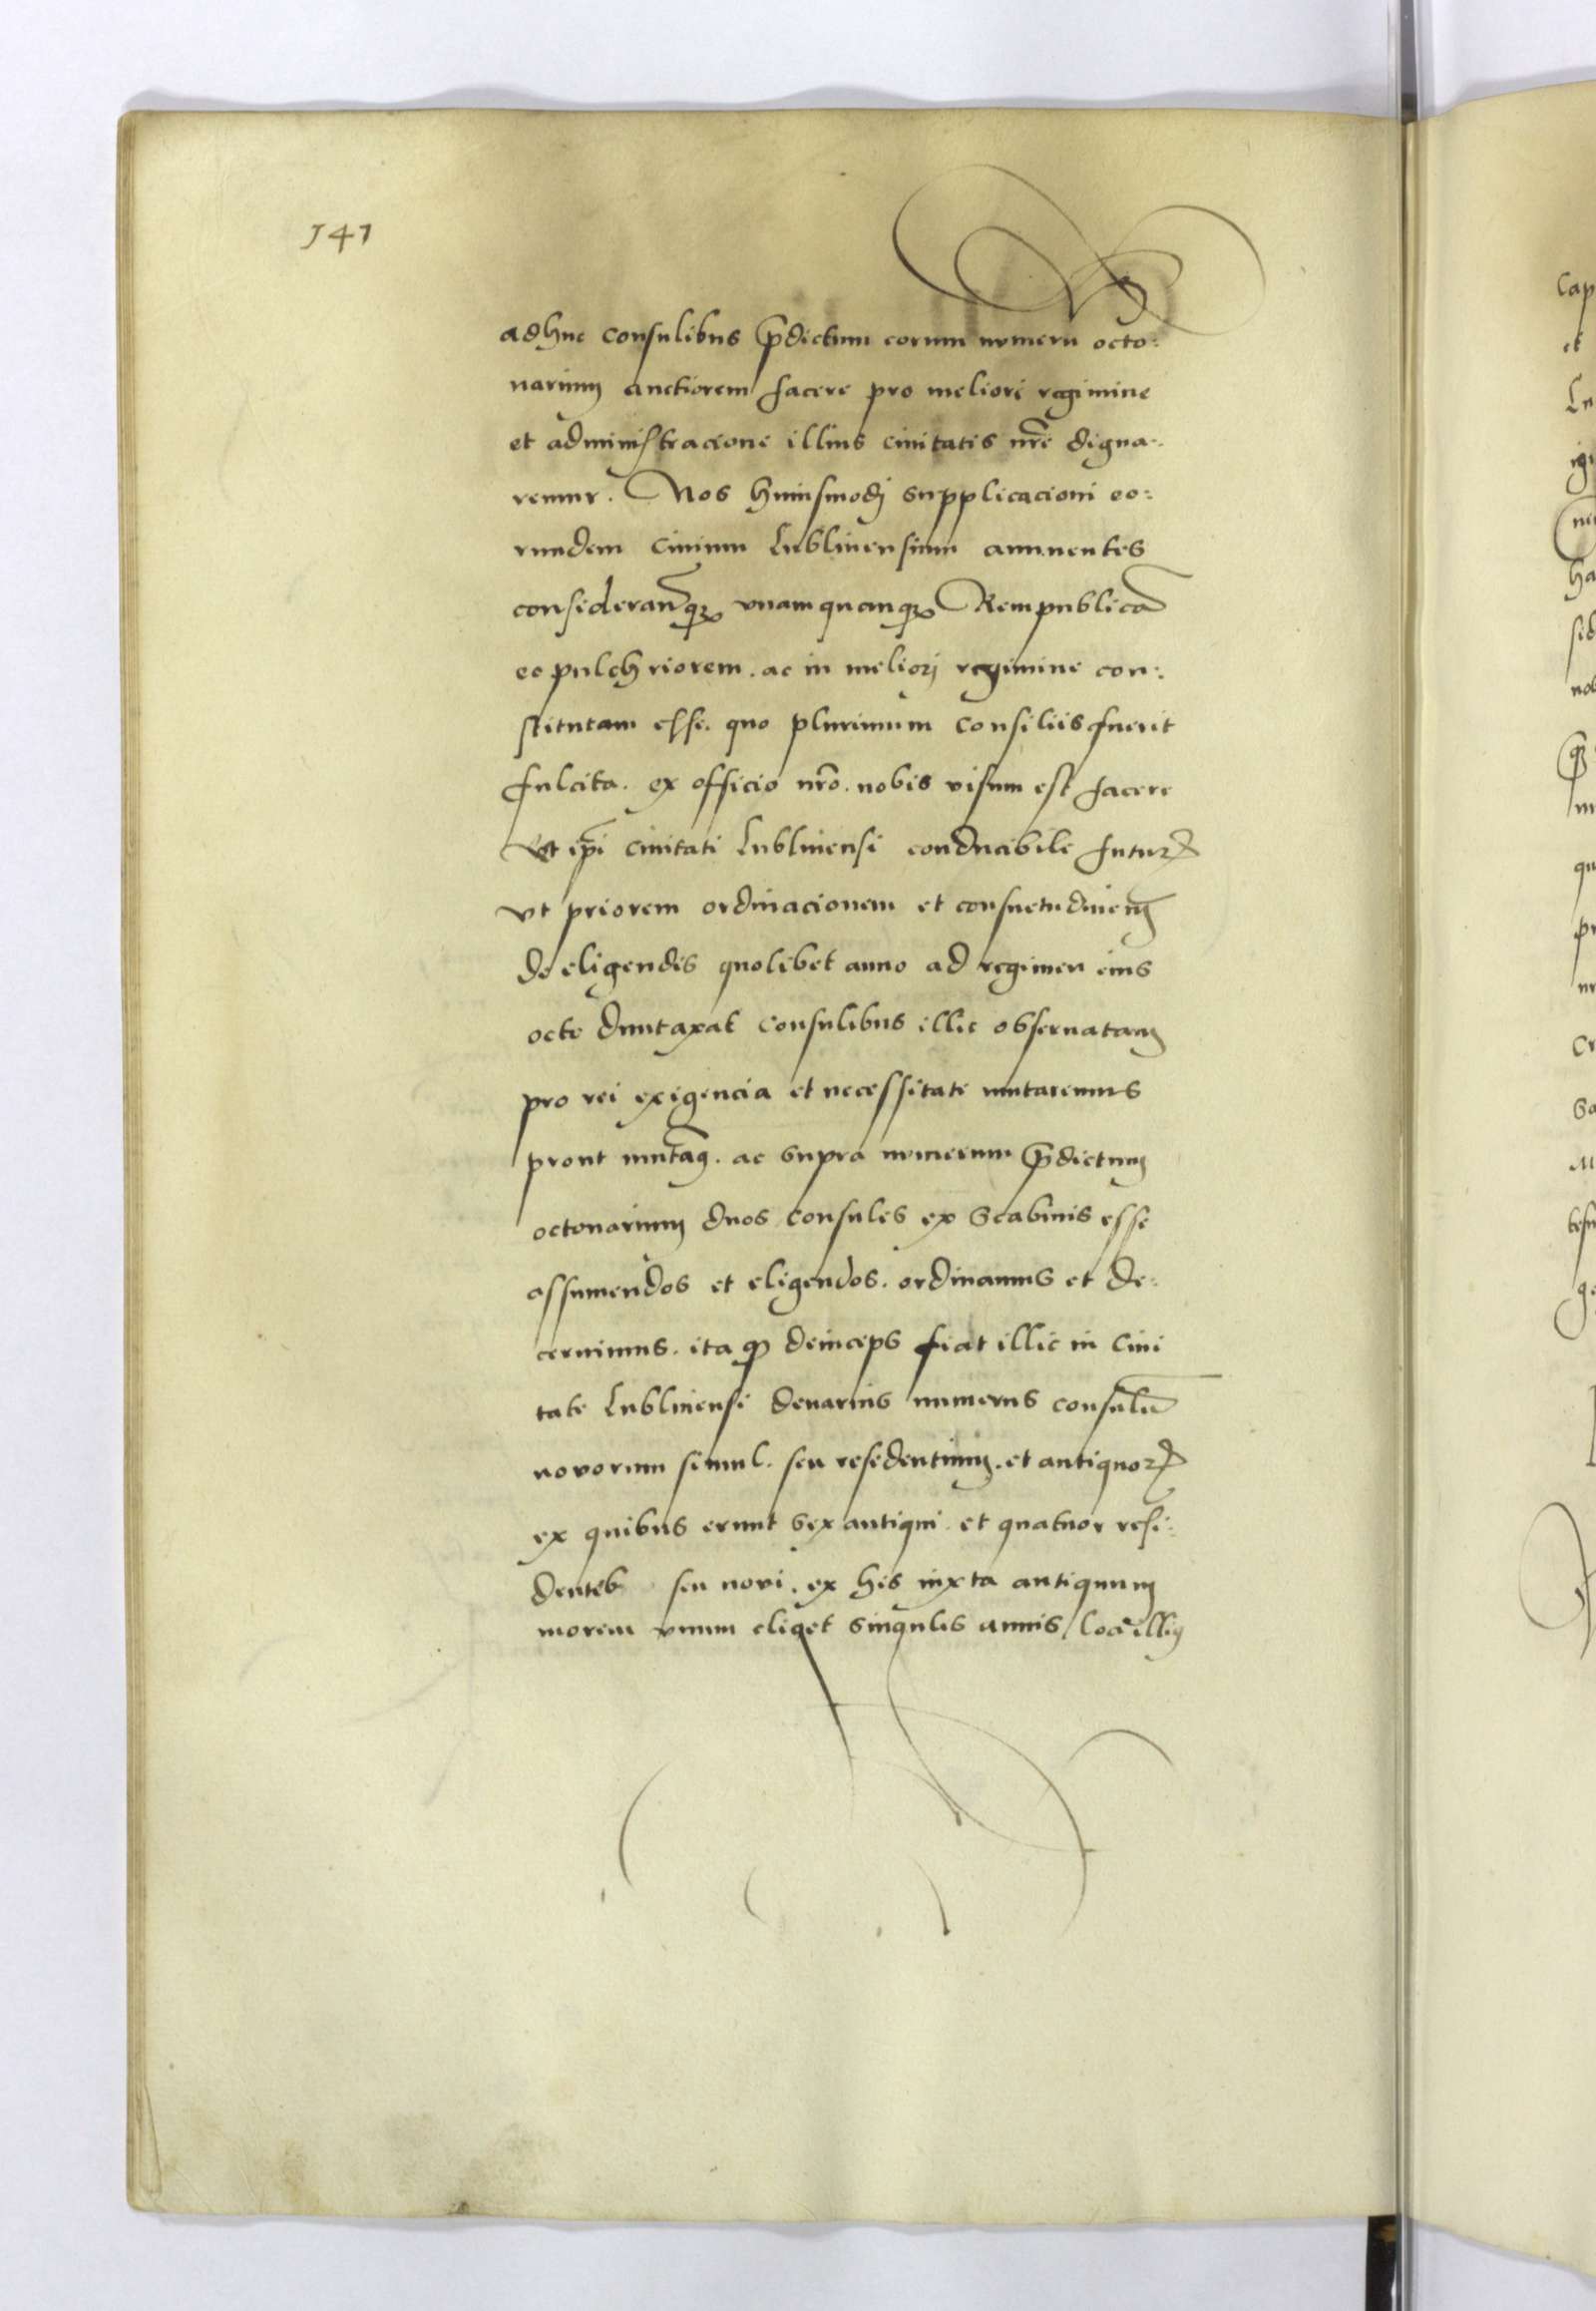 141
adhuc consulibus p̄dictum eorum numerū octo:
narium auctiorem facere pro meliori regimine
et administracione illius ciuitatis nrē digna:
remur. Nos huiusmodj supplicacioni eo:
rundem ciuium Lublinensium annuentes
considerantesq̨ vnamquamq̨ Rempublicā
eo pulchriorem. ac in meliorj regimine con:
stitutam esse. quo plurimum consiliis fuerit
fulcita. ex officio nrō. nobis visum est facere
Et ip̄i ciuitati Lublinensi conducibile futurꝝ
vt priorem ordinacionem et consuetudinem
de eligendis quolibet anno ad regimen eius
octo duntaxat consulibus illic obseruatam
pro rei exigencia et necessitate mutaremus
prout mutam̄9. ac supra numerum p̄dictum
octonarium duos consules ex Scabinis esse
assumendos et eligendos. ordinamus et de:
cernimus. ita ꝙ deinceps fiat illic in Ciui
tate Lublinensi denarius numerus consulū
novorum simul. seu residentium. et antiquorꝝ
ex quibus erunt sex antiqui et quatuor resi:
dentes seu novi. ex his iuxta antiquum
morem vnum eliget singulis annis locī illi9
Cap
et